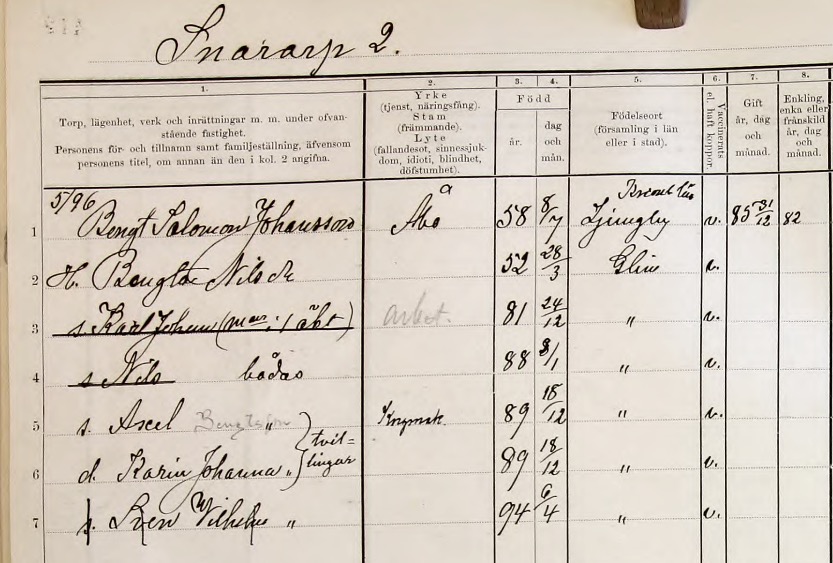 Snararp 2.
1. 2. 3. 4. 5. 6. 7. 8.
Torp, lägenhet, verk och inrättningar m. m. under ofvan-
stående fastighet.
Personens för- och tillnamn samt familjeställning, äfvensom
personens titel, om annan än den i kol. 2 angifna.
Yrke
(tjenst, näringsfång).
Stam
(främmande).
Lyte
(fallandesot, sinnessjuk-
dom, idioti, blindhet,
döfstumhet).
Född
år.
dag
och
mån.
Födelseort
(församling i län
eller i stad).
Vaccinerats
el. haft koppor.
Gift
år, dag
och
månad.
Enkling,
enka eller
frånskild
år, dag
och
månad.
5/96
1 Bengt Salomon Johansson Åbo 58 8/7 Ljungby v. 85 31/12 82
2 H. Bengta Nilsdr 52 28/3 Glim v.
3 s. Karl Johan ( arbet. 81 24/12 " v.
4 s Nils bådas 88 8/1 " v.
5 s. Axel Bengtsson " 89 18/12 " v.
tvil-
lingar
6 d. Karin Johanna " 89 18/12 " v.
7 s. Sven Vilhelm " 94 6/4 " v.